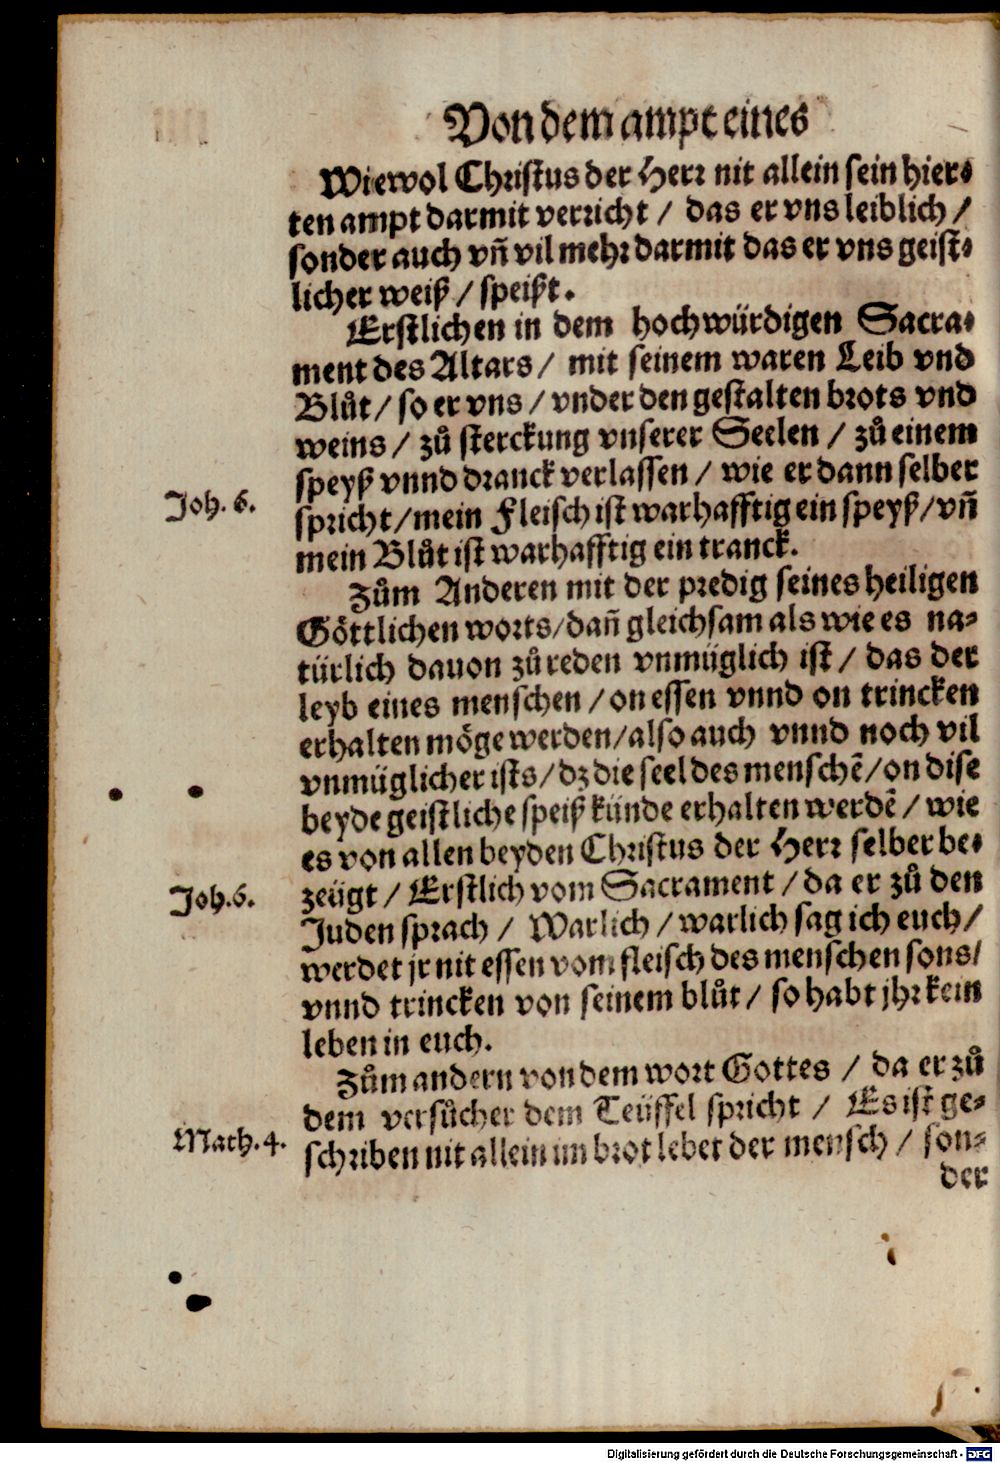 Von dem ampt eines
Wiewol Christus der Herr nit allein sein hier-
ten ampt darmit verricht / das er vns leiblich /
sonder auch vñ vil mehr darmit das er vns geist-
licher weiß / speißt.
Erstlichen in dem hochwürdigen Sacra-
ment des Altars / mit seinem waren Leib vnd
Blůt / so er vns / vnder den gestalten brots vnd
weins / zů sterckung vnserer Seelen / zů einem
speyß vnnd dranck verlassen / wie er dann selber
Joh. 6.
spricht / mein Fleisch ist warhafftig ein speyß / vñ
mein Blůt ist warhafftig ein tranck.
Zům Anderen mit der predig seines heiligen
Göttlichen worts / dañ gleichsam als wie es na-
türlich dauon zů reden vnmüglich ist / das der
leyb eines menschen / on essen vnnd on trincken
erhalten möge werden / also auch vnnd noch vil
vnmüglicher ists / dz die seel des menschē / on dise
beyde geistliche speiß künde erhalten werdē / wie
es von allen beyden Christus der Herr selber be-
Joh. 6.
zeügt / Erstlich vom Sacrament / da er zů den
Juden sprach / Warlich / warlich sag ich euch /
werdet jr nit essen vom fleisch des menschen sons /
vnnd trincken von seinem blůt / so habt jhr kein
leben in euch.
Zům andern von dem wort Gottes / da er zů
dem versůcher dem Teüffel spricht / Es ist ge-
Math. 4.
schriben nit allein im brot lebet der mensch / son-
der
Digitalisierung gefördert durch die Deutsche Forschungsgemeinschaft - DFG